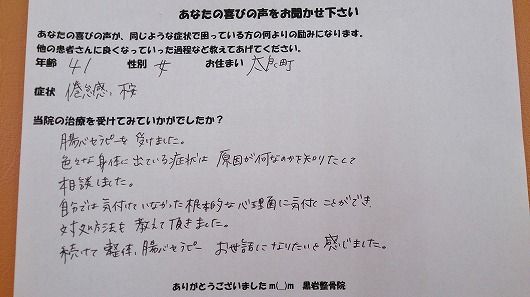 あなたの喜びの声をお聞かせ下さい
あなたの喜びの声が、同じような症状で困っている方の何よりの励みになります。
他の患者さんに良くなっていった過程など教えてあげてください。
年齢 41 性別 女 お住まい 大良町
症状 倦怠感、
当院の治療を受けてみていかがでしたか？
腸心セラピーを受けました。
色々な身体に出ている症状は 原因が何なのかを知りたくて
相談しました。
自分では気付けていなかった根本的な心理面に気付くことができ、
対処方法を教えて頂きました。
続けて整体、腸心セラピー お世話になりたいと感じました。
ありがとうございましたm(__)m 黒岩整骨院